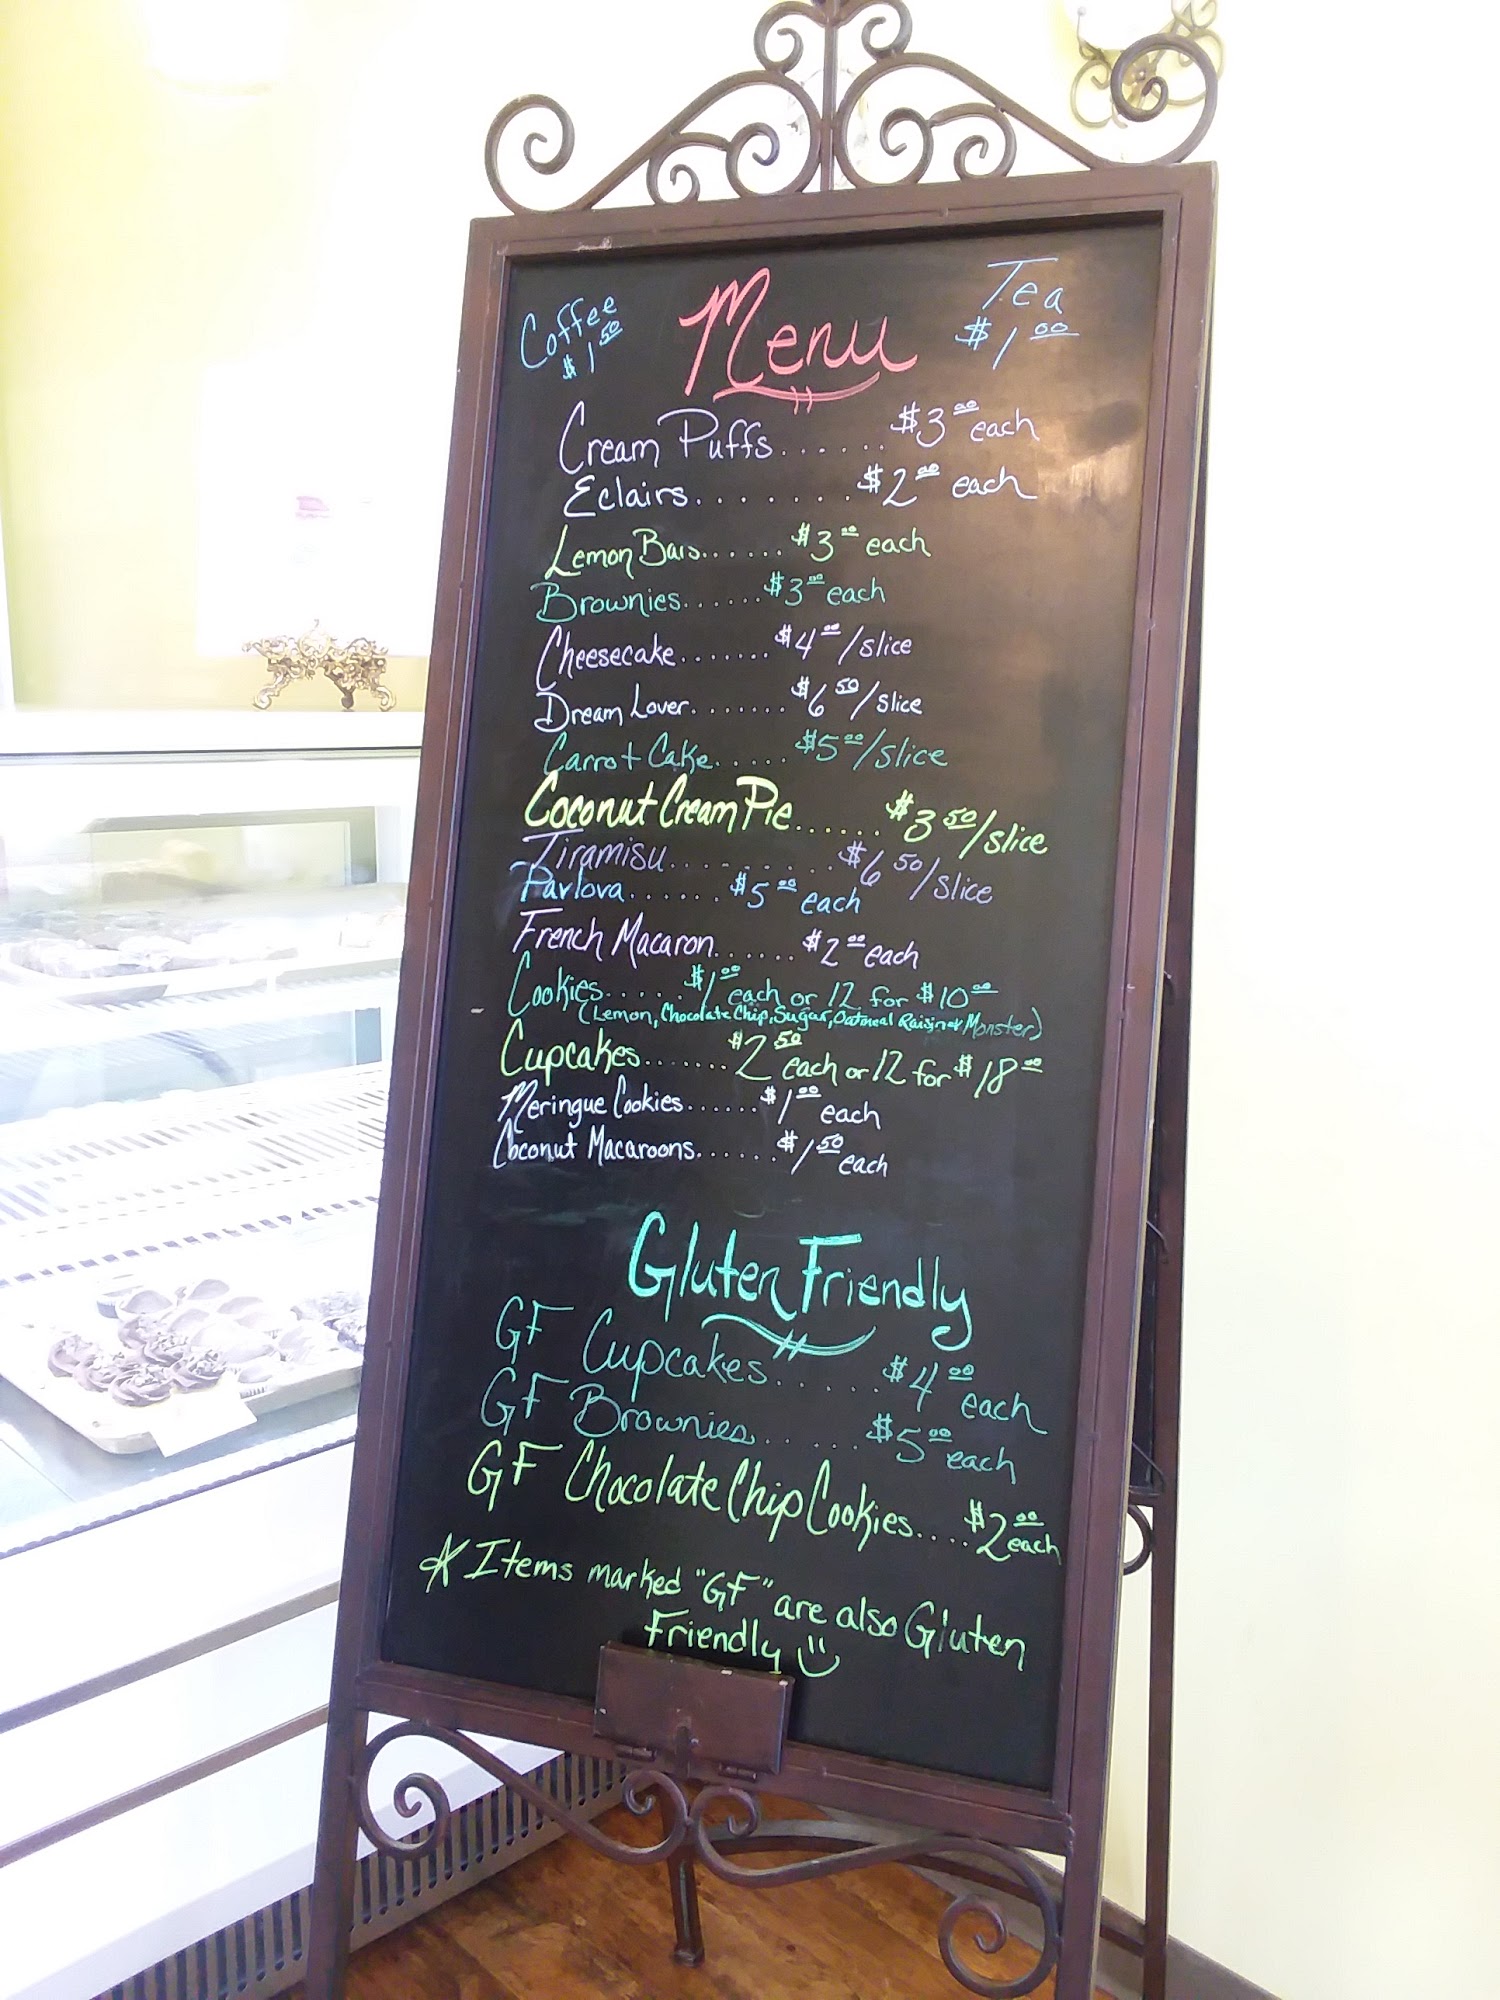 Menu
Coffee
$1.50
Tea
$1.00
Cream Puffs...... $3.00 each
Eclairs....... $2.00 each
Lemon Bars...... $3.00 each
Brownies...... $3.00 each
Cheesecake....... $4.00/slice
Dream Lover....... $6.50/slice
Carrot Cake..... $5.00/slice
Coconut Cream Pie...... $3.50/slice
Tiramisu......... $6.50/slice
Pavlova...... $5.00 each
French Macaron...... $2.00 each
Cookies..... $1.00 each or 12 for $10.00
(Lemon, Chocolate Chip, Sugar, Oatmeal Raisin or Monster)
Cupcakes....... $2.50 each or 12 for $18.00
Meringue Cookies...... $1.00 each
Coconut Macaroons...... $1.50 each
Gluten Friendly
GF Cupcakes...... $4.00 each
GF Brownies...... $5.00 each
GF Chocolate Chip Cookies.... $2.00 each
* Items marked "GF" are also Gluten
Friendly